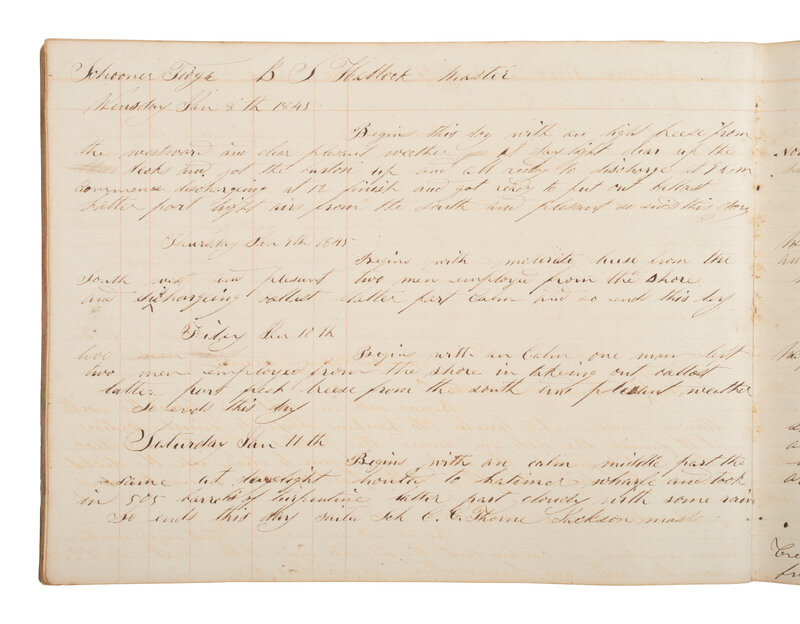 Schooner Tioga B S Hallock Master
Wensday Jan 8th 1845
Begins this day with an light breese from
the westward and clear plesent weather at day light clear up the
deck and got the up and all redy to discharge at 9 a m
commence dischargeing at 12 finish and got ready to put out ballast
latter part light airs from the South and plesant so ends this day
Thursday Jan 9th 1845
Begins with moderate breese from the
South west and plesent two men employed from the shore
and discharging ballest latter part calm and so ends this day
Friday Jan 10th
two men Begins with an Calm one man left
two men employed from the shore in takeing out ballast
latter part fresh breese from the south and plesant weather
So ends this day
Saturday Jan 11th
Begins with an calm middle part the
same at daylight to wharfe and took
in 505 barrels of turpentine latter part cloudy with some rain
So ends this day Sch C. C. Thorne Jackson master